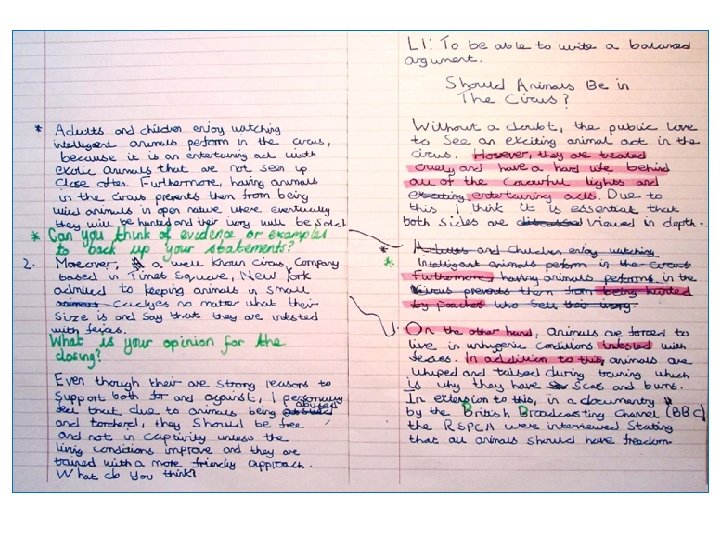 * Adults and children enjoy watching
intelligent animals perform in the circus,
because it is an entertaining act with
exotic animals that are not seen up
close often. Furthermore, having animals
in the circus prevents them from being
wild animals in open nature where eventually
they will be hunted and their ivory will be sold.
* Can you think of evidence or examples
to back up your statements?
2. Moreover, a well known circus company
based in Times Square, New York
admitted to keeping animals in small
animals cages no matter what their
size is and say that they are infested
with feices.
What is your opinion for the
closing?
Even though their are strong reasons to
support both for and against, I personally
feel that due to animals being abused
and tortured, they should be free
and not in captivity unless the
living conditions improve and they are
trained with a more friendly approach.
What do you think?
LI: To be able to write a balanced
argument.
Should Animals Be in
The Circus?
Without a doubt, the public love
to see an exciting animal act in the
circus. However, they are treated
cruely and have a hard life behind
all of the colourful lights and
exciting entertaining acts. Due to
this I think it is essential that
both sides are viewed in depth.
* Adults and children enjoy watching
* Intelligent animals perform in the circus
Futhermore, having animals performs in the
circus prevents them from being hunted
by poachers who sell their ivory.
1. On the other hand, animals are forced to
live in unhygenic conditions infested with
feaces. In addition to this, animals are
whiped and during training which
is why they have scars and burns.
In extension to this, in a documentry
by the British Broadcasting Channel (BBC)
the RSPCA were interviewed stating
that all animals should have freedom